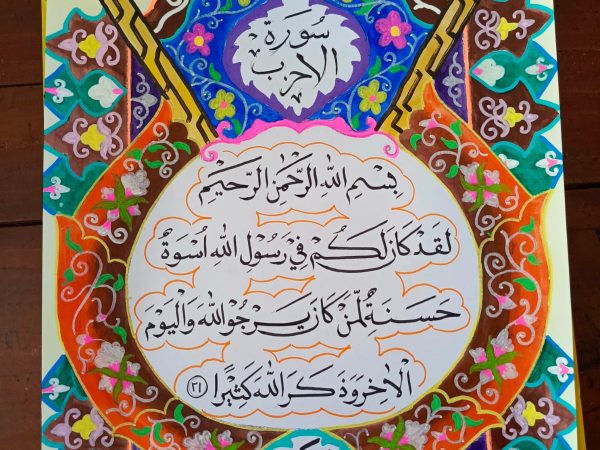 سورة
الاحزب
بِسْمِ اللهِ الرَّحْمٰنِ الرَّحِيْمِ
لَقَدْ كَانَ لَكُمْ فِيْ رَسُوْلِ اللهِ اُسْوَةٌ
حَسَنَةٌ لِّمَنْ كَانَ يَرْجُوا اللهَ وَالْيَوْمَ
الْاٰخِرَ وَذَكَرَ اللهَ كَثِيْرًا ٢١